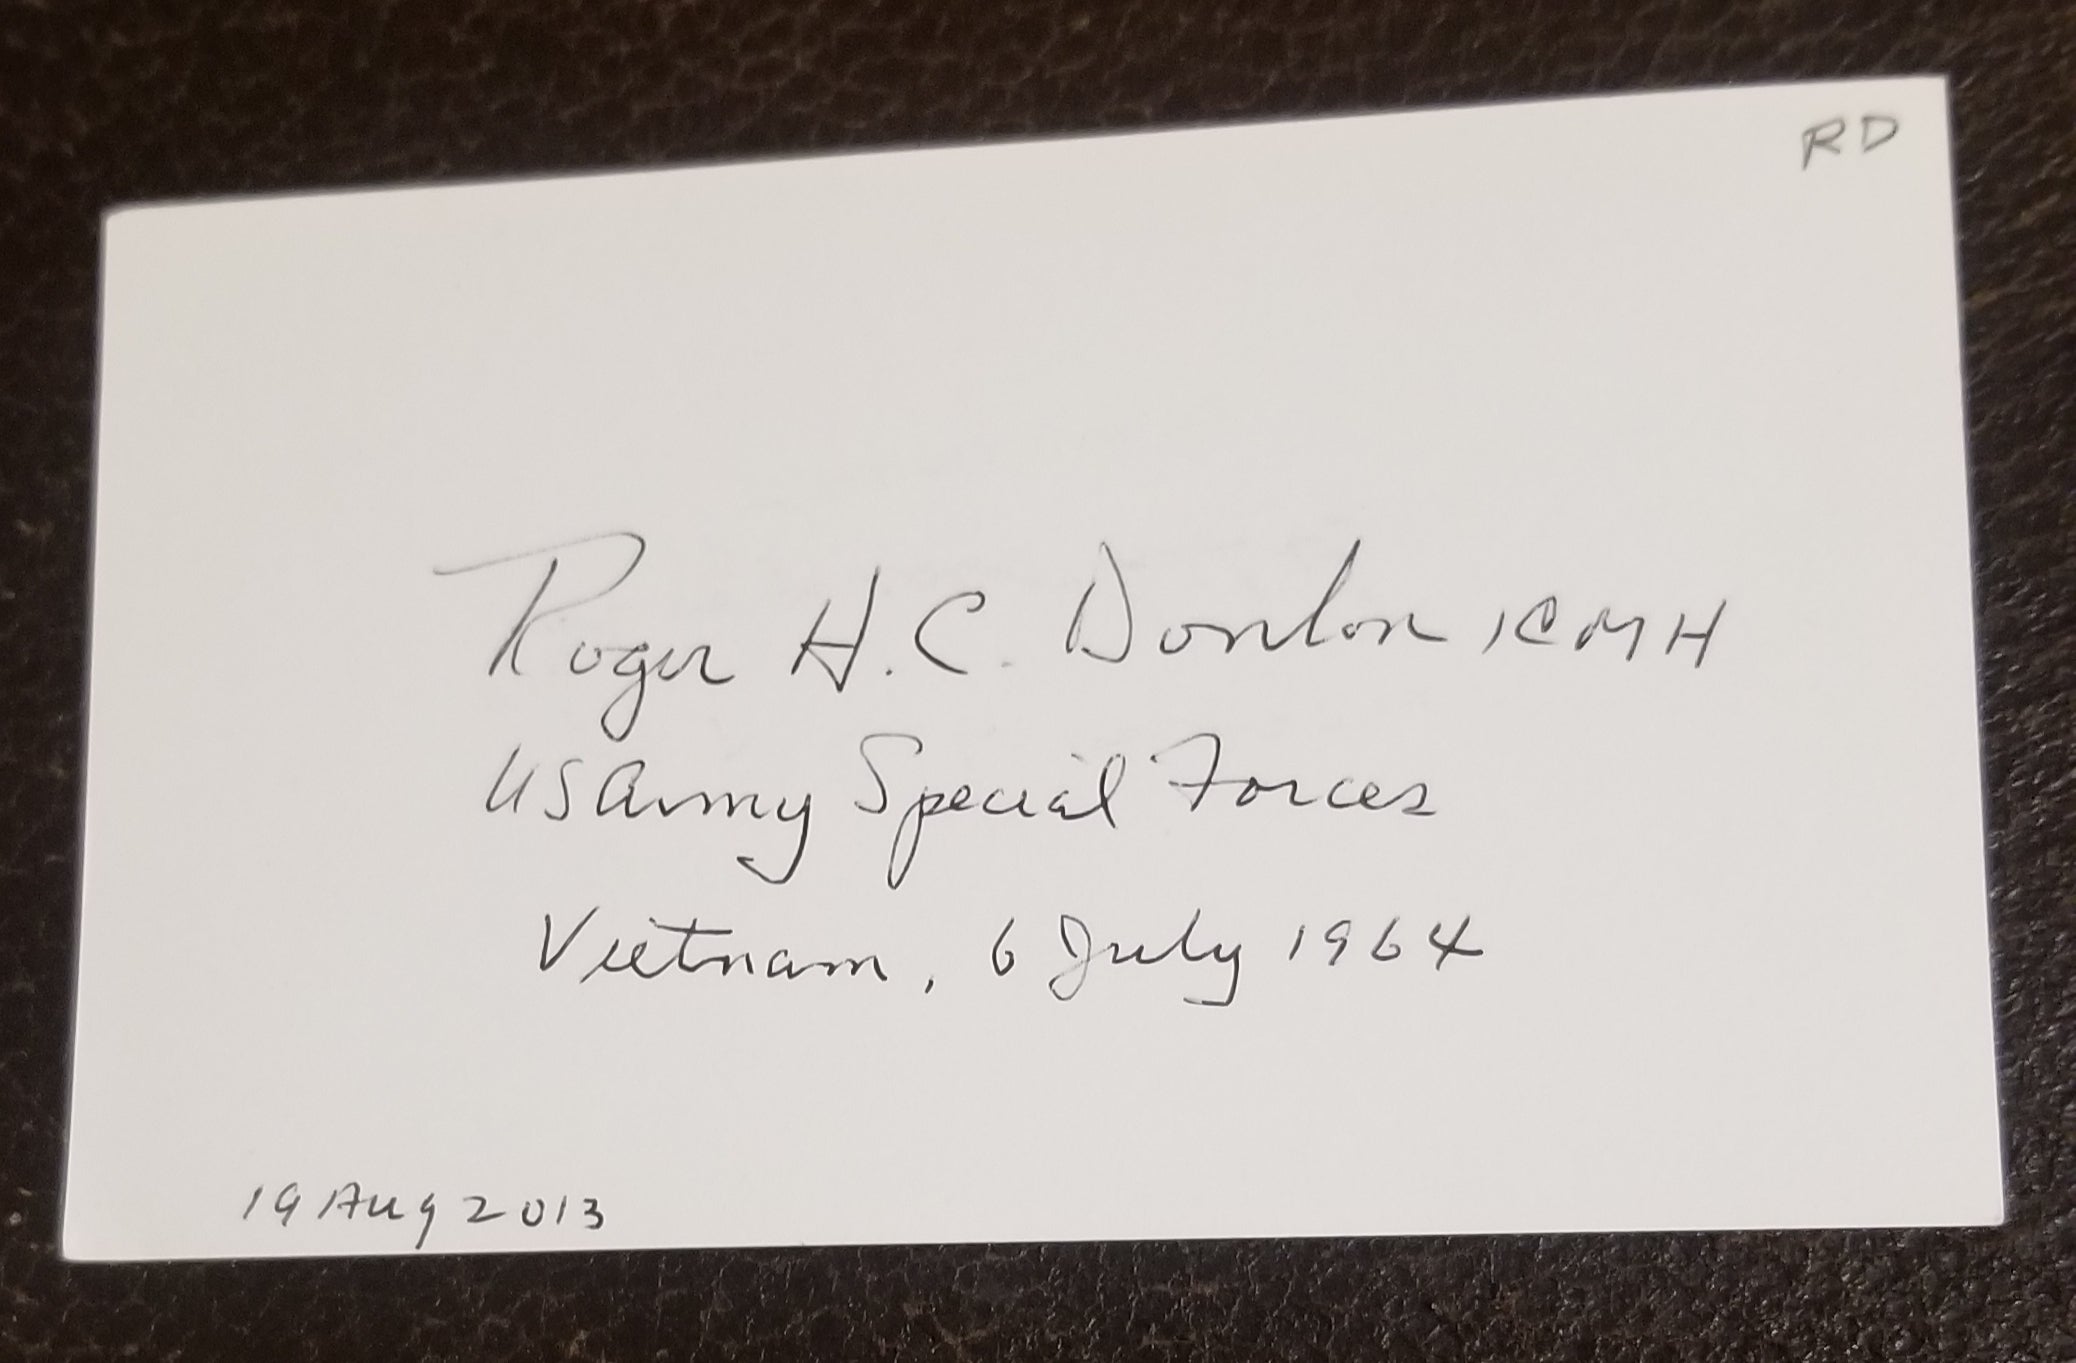 RD
Roger H.C. Donlon, CMH
US Army Special Forces
Vietnam, 6 July 1964
19 Aug 2013